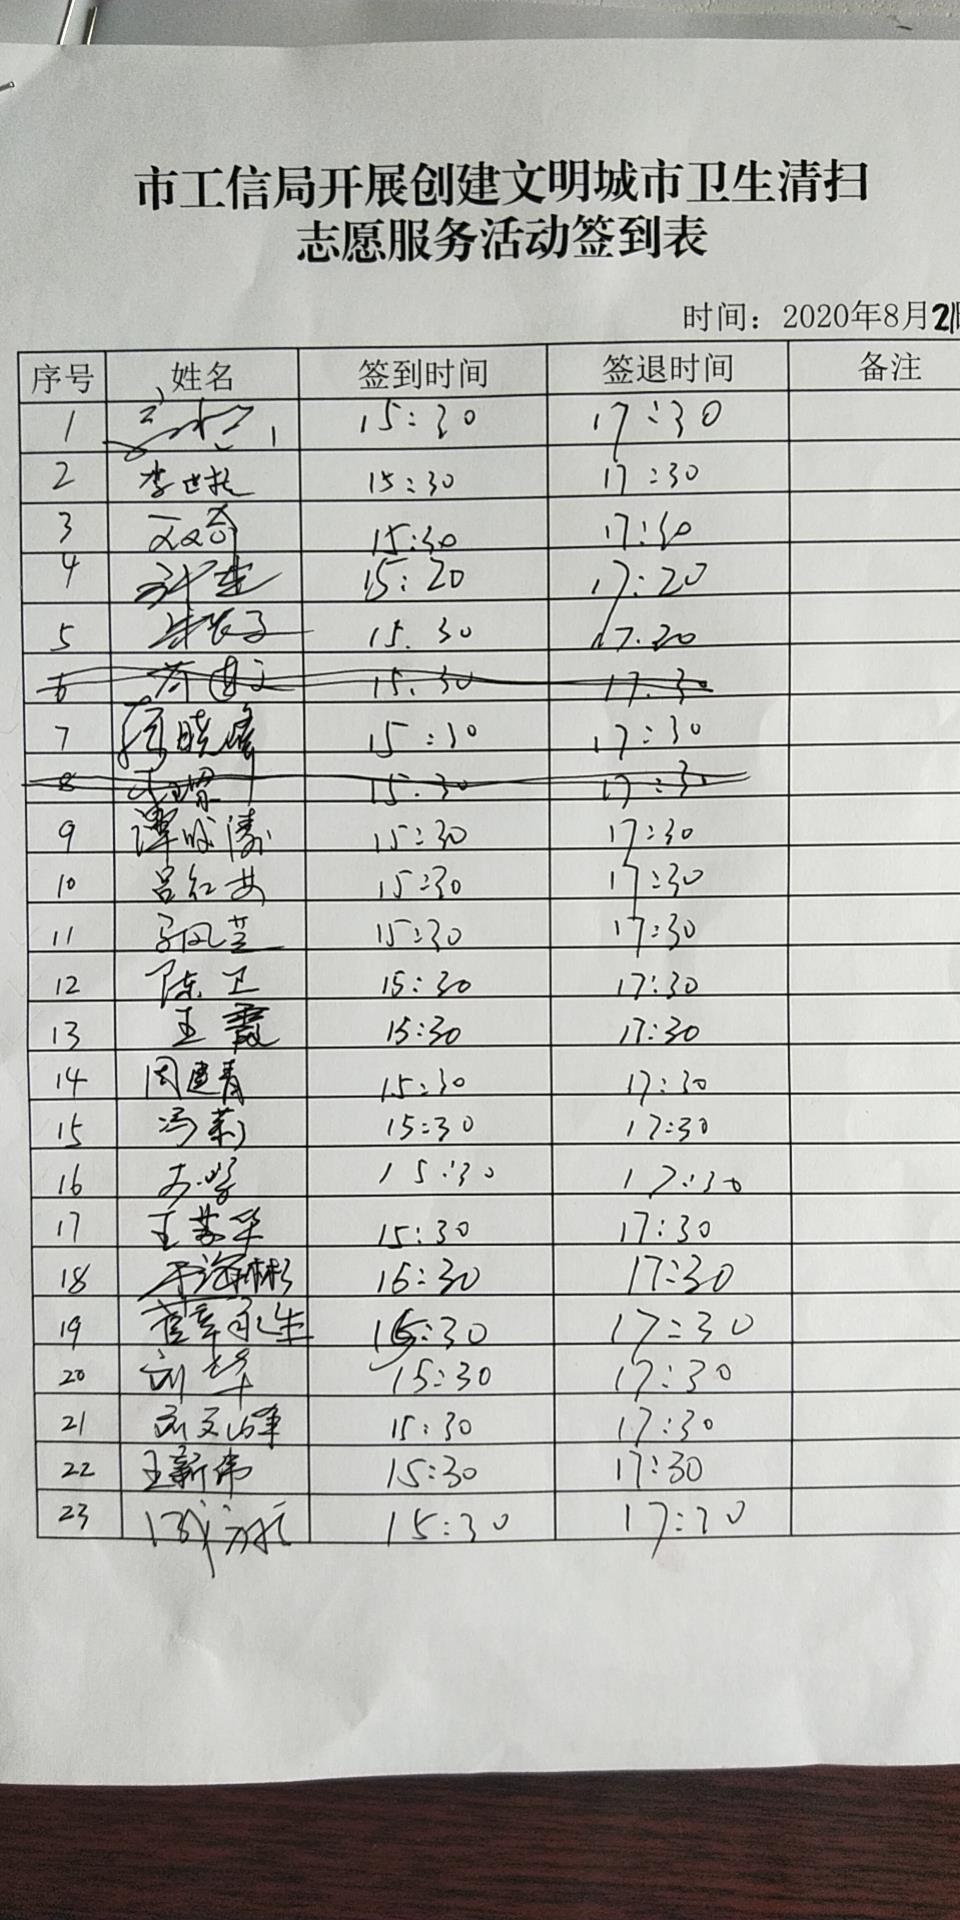 市工信局开展创建文明城市卫生清扫
志愿服务活动签到表
时间：2020年8月21日
序号 姓名 签到时间 签退时间 备注
1 15:30 17:30
2 李世 15:30 17:30
3 15:30 17:30
4 15:20 17:20
5 15.30 17.30
6 15.30 17.30
7 晓峰 15:30 17:30
8 15:30 17:30
9 谭成涛 15:30 17:30
10 吕红 15:30 17:30
11 15:30 17:30
12 陈卫 15:30 17:30
13 王霞 15:30 17:30
14 周建青 15:30 17:30
15 冯莉 15:30 17:30
16 15:30 17:30
17 王苏华 15:30 17:30
18 海彬 15:30 17:30
19 永生 15:30 17:30
20 刘华 15:30 17:30
21 文峰 15:30 17:30
22 王新伟 15:30 17:30
23 15:30 17:30